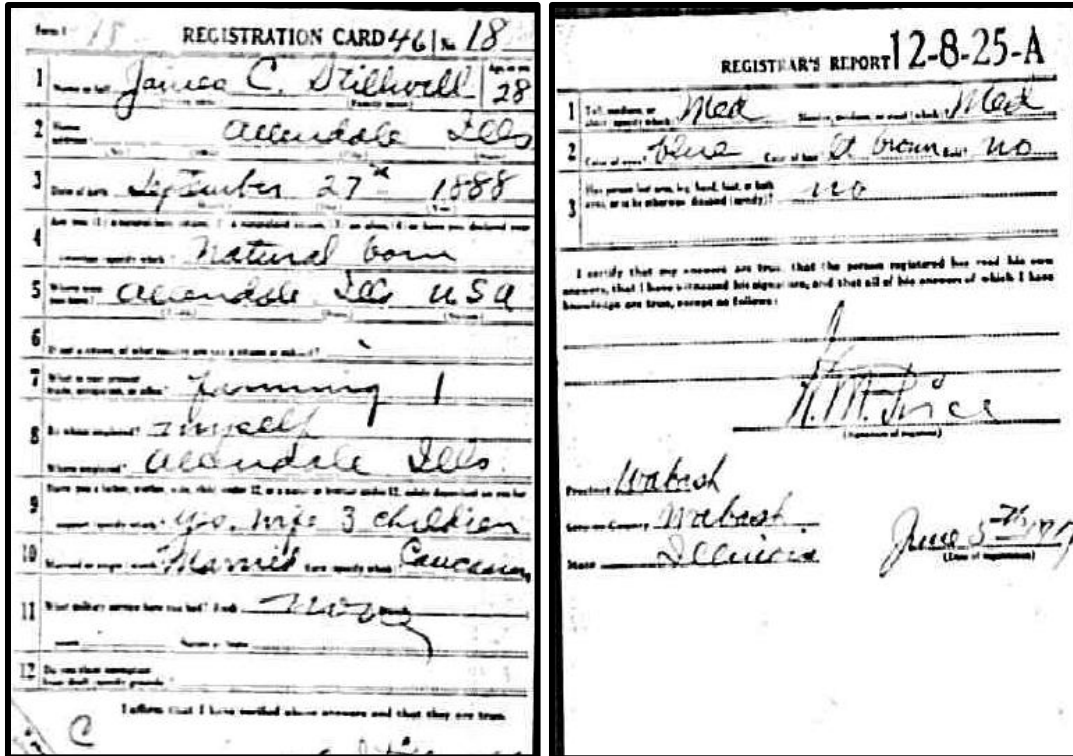 Form 1 18 REGISTRATION CARD 461 No. 18
1 Name in full James C. Stillwell Age, in yrs. 28
(Family name)
2 Home address Allendale Ills
(No.) (Street) (City) (State)
3 Date of birth September 27th 1888
(Month) (Day) (Year)
4 Are you (1) a natural-born citizen, (2) a naturalized citizen, (3) an alien, (4) or have you declared your
intention (specify which)? Natural born
5 Where were you born? Allendale Ills USA
(Town) (State) (Nation)
6 If not a citizen, of what country are you a citizen or subject?
7 What is your present trade, occupation, or office? Farming 1
8 By whom employed? myself
Where employed? Allendale Ills.
9 Have you a father, mother, wife, child under 12, or a sister or brother under 12, solely dependent on you for
support (specify which)? Yes, wife 3 children
10 Married or single (which)? Married Race (specify which)? Caucasian
11 What military service have you had? Rank None
Nation or State
12 Do you claim exemption from draft (specify grounds)?
I affirm that I have verified above answers and that they are true.
C
REGISTRAR'S REPORT 12-8-25-A
1 Tall, medium, or short (specify which)? Med Slender, medium, or stout (which)? Med
2 Color of eyes? blue Color of hair? lt brown Bald? no
3 Has person lost arm, leg, hand, foot, or both
eyes, or is he otherwise disabled (specify)? no
I certify that my answers are true, that the person registered has read his own
answers, that I have witnessed his signature, and that all of his answers of which I have
knowledge are true, except as follows:
Price
(Signature of registrar)
Precinct Wabash
City or County Wabash
State Illinois June 5th 1917
(Date of registration)